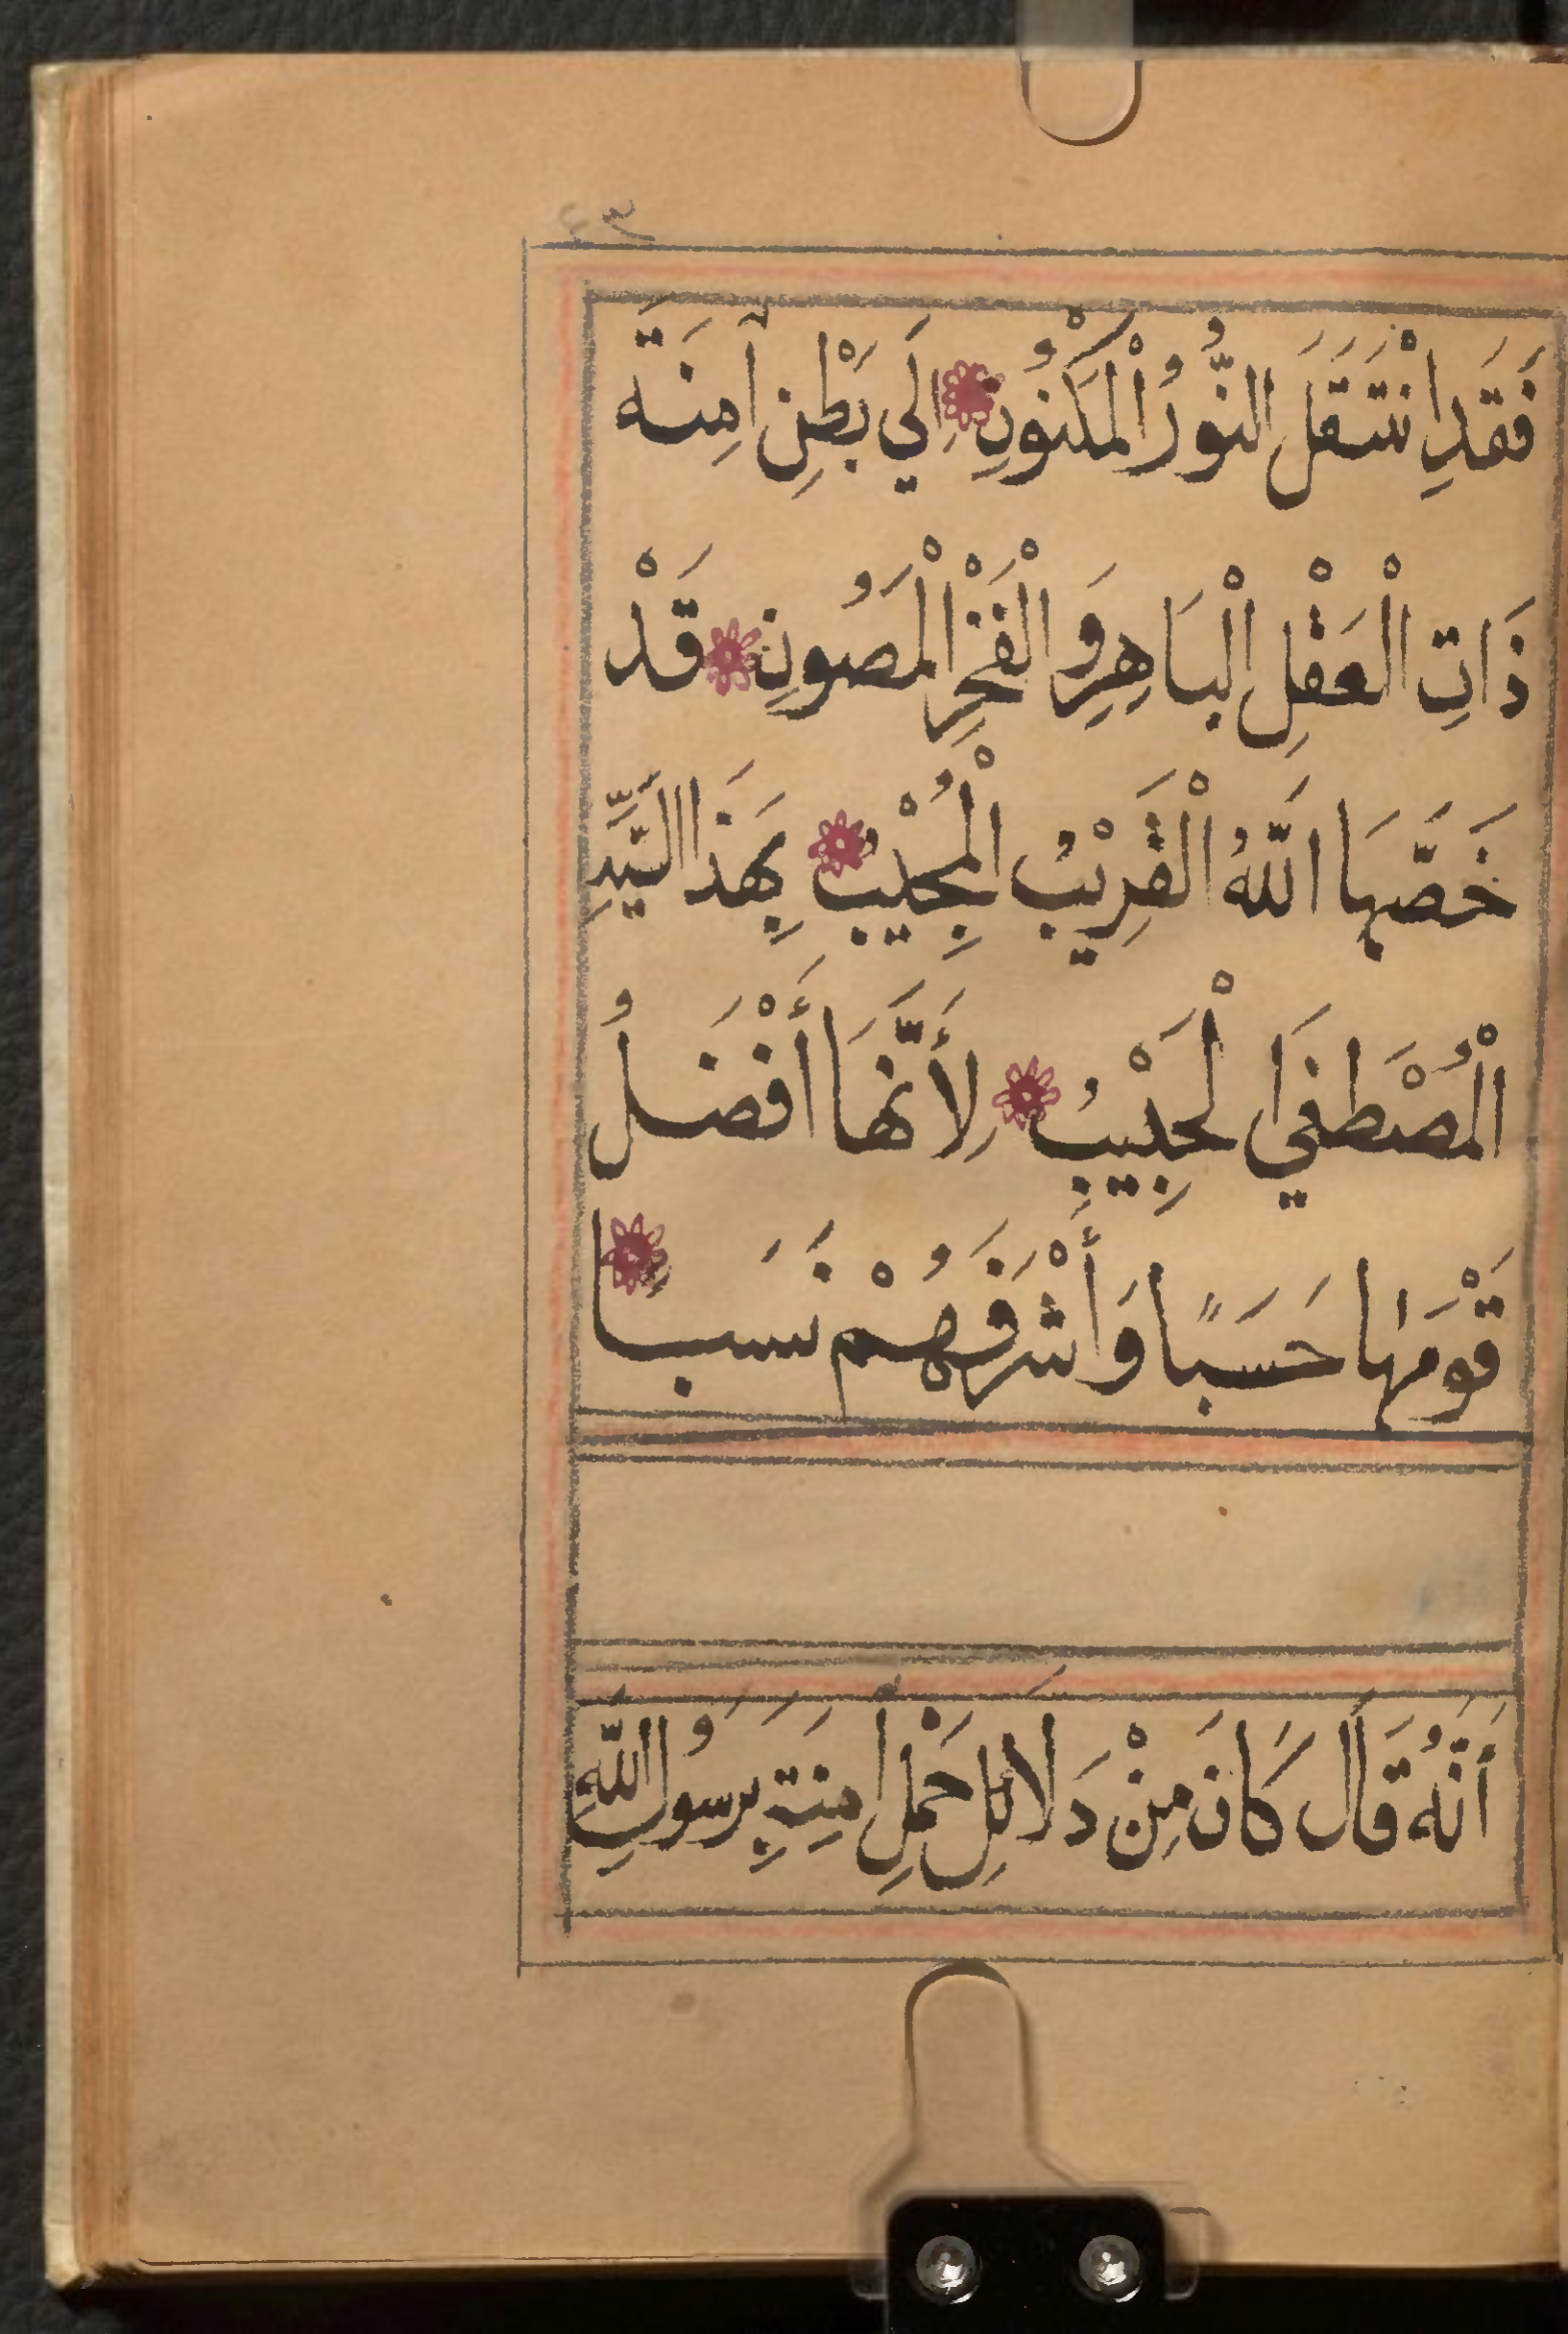 فَقَدِ انْتَقَلَ النُّورُ الْمَكْنُونِ اِلَي بَطْنِ آمِنَةَ
ذَاتِ الْعَقْلِ الْبَاهِرِ وَالْفَخْرِ الْمَصُونِ قَدْ
خَصَّهَا اللَّهُ الْقَرِيْبُ الْمُجِيْبُ بِهَذَا السَّيِّدِ
الْمُصْطَفَي الْحَبِيْبُ لِأَنَّهَا أَفْضَلُ
قَوْمَهَا حَسَبًا وَأَشْرَفَهُمْ نَسَبا
أَنَّهُ قَالَ كَانَ مِنْ دَلَائِلِ حَمْلِ امِنَةِ بِرَسُولِ اللَّهِ